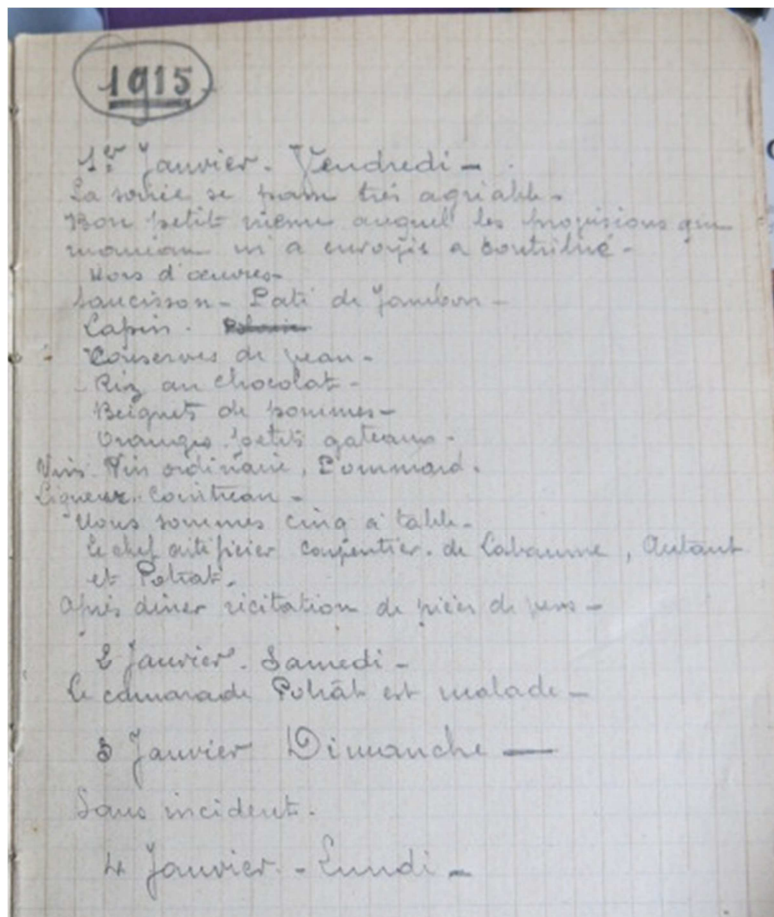 1915
1er Janvier. Vendredi -
La soirée se passe très agréable -
Bon petit menu auquel les provisions que
maman m'a envoyés a contribué -
Hors d'œuvres -
Saucisson - Paté de Jambon -
Lapin.
Conserves de
Riz au chocolat -
Beignets de pommes -
Oranges, petits gateaux -
Vins. Vin ordinaire, Pommard.
Liqueur. Cointreau -
Nous sommes cinq a table -
Le chef artificier Carpentier. de Labaume, Autant
et
Après diner récitation de pièces de vers -
2 Janvier. Samedi -
Le camarade est malade -
3 Janvier Dimanche —
Sans incident.
4 Janvier. - Lundi -